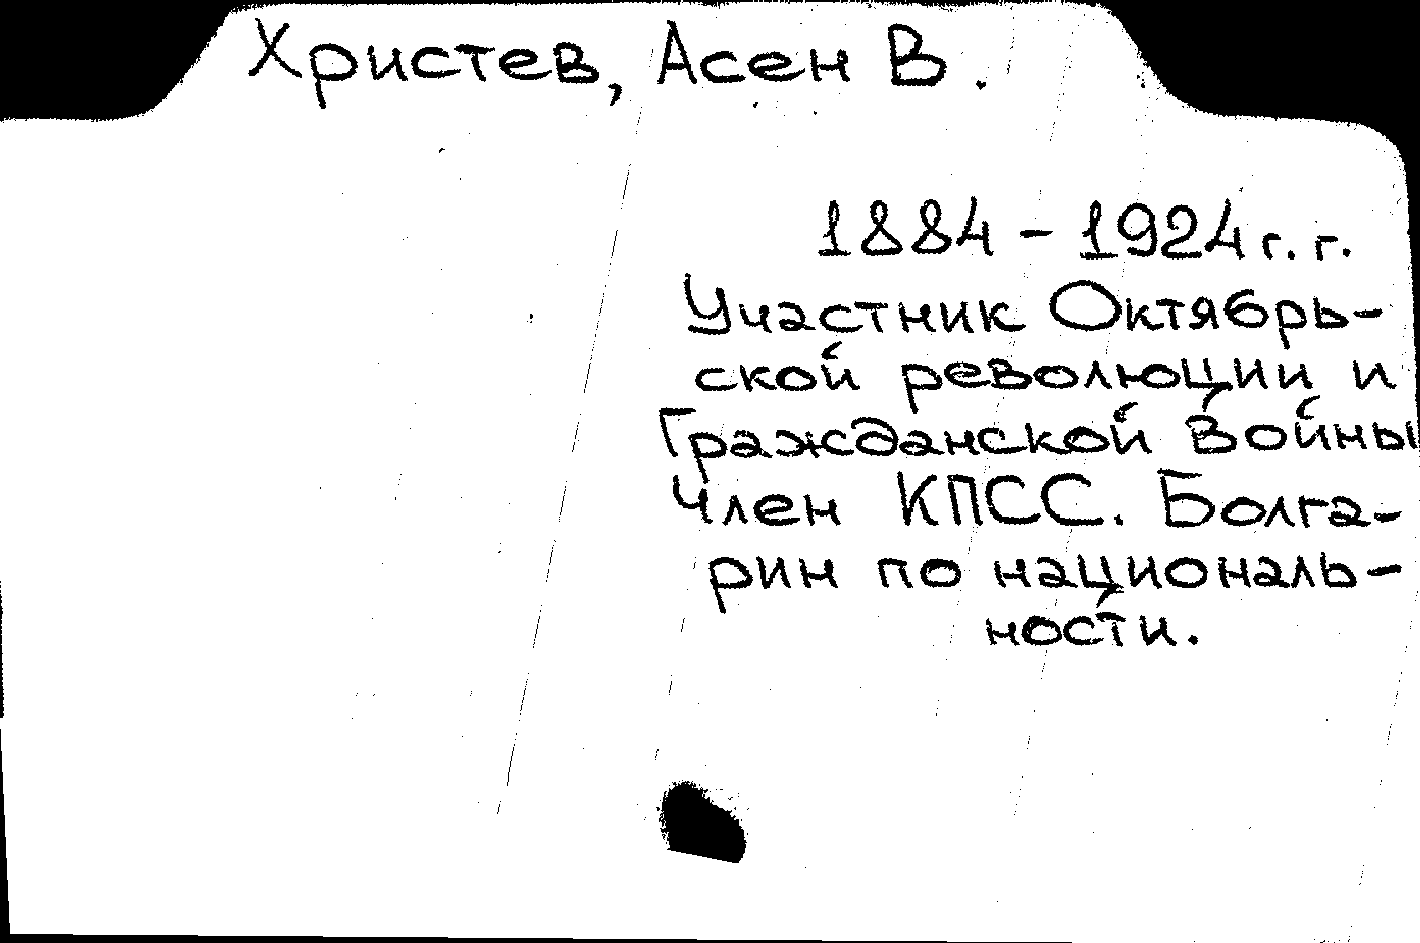 Христев, Асен В.
1884 - 1924 г. г.
Участник Октябрь-
ской революции и
Гражданской войны
Член КПСС. Болга-
рин по националь-
ности.